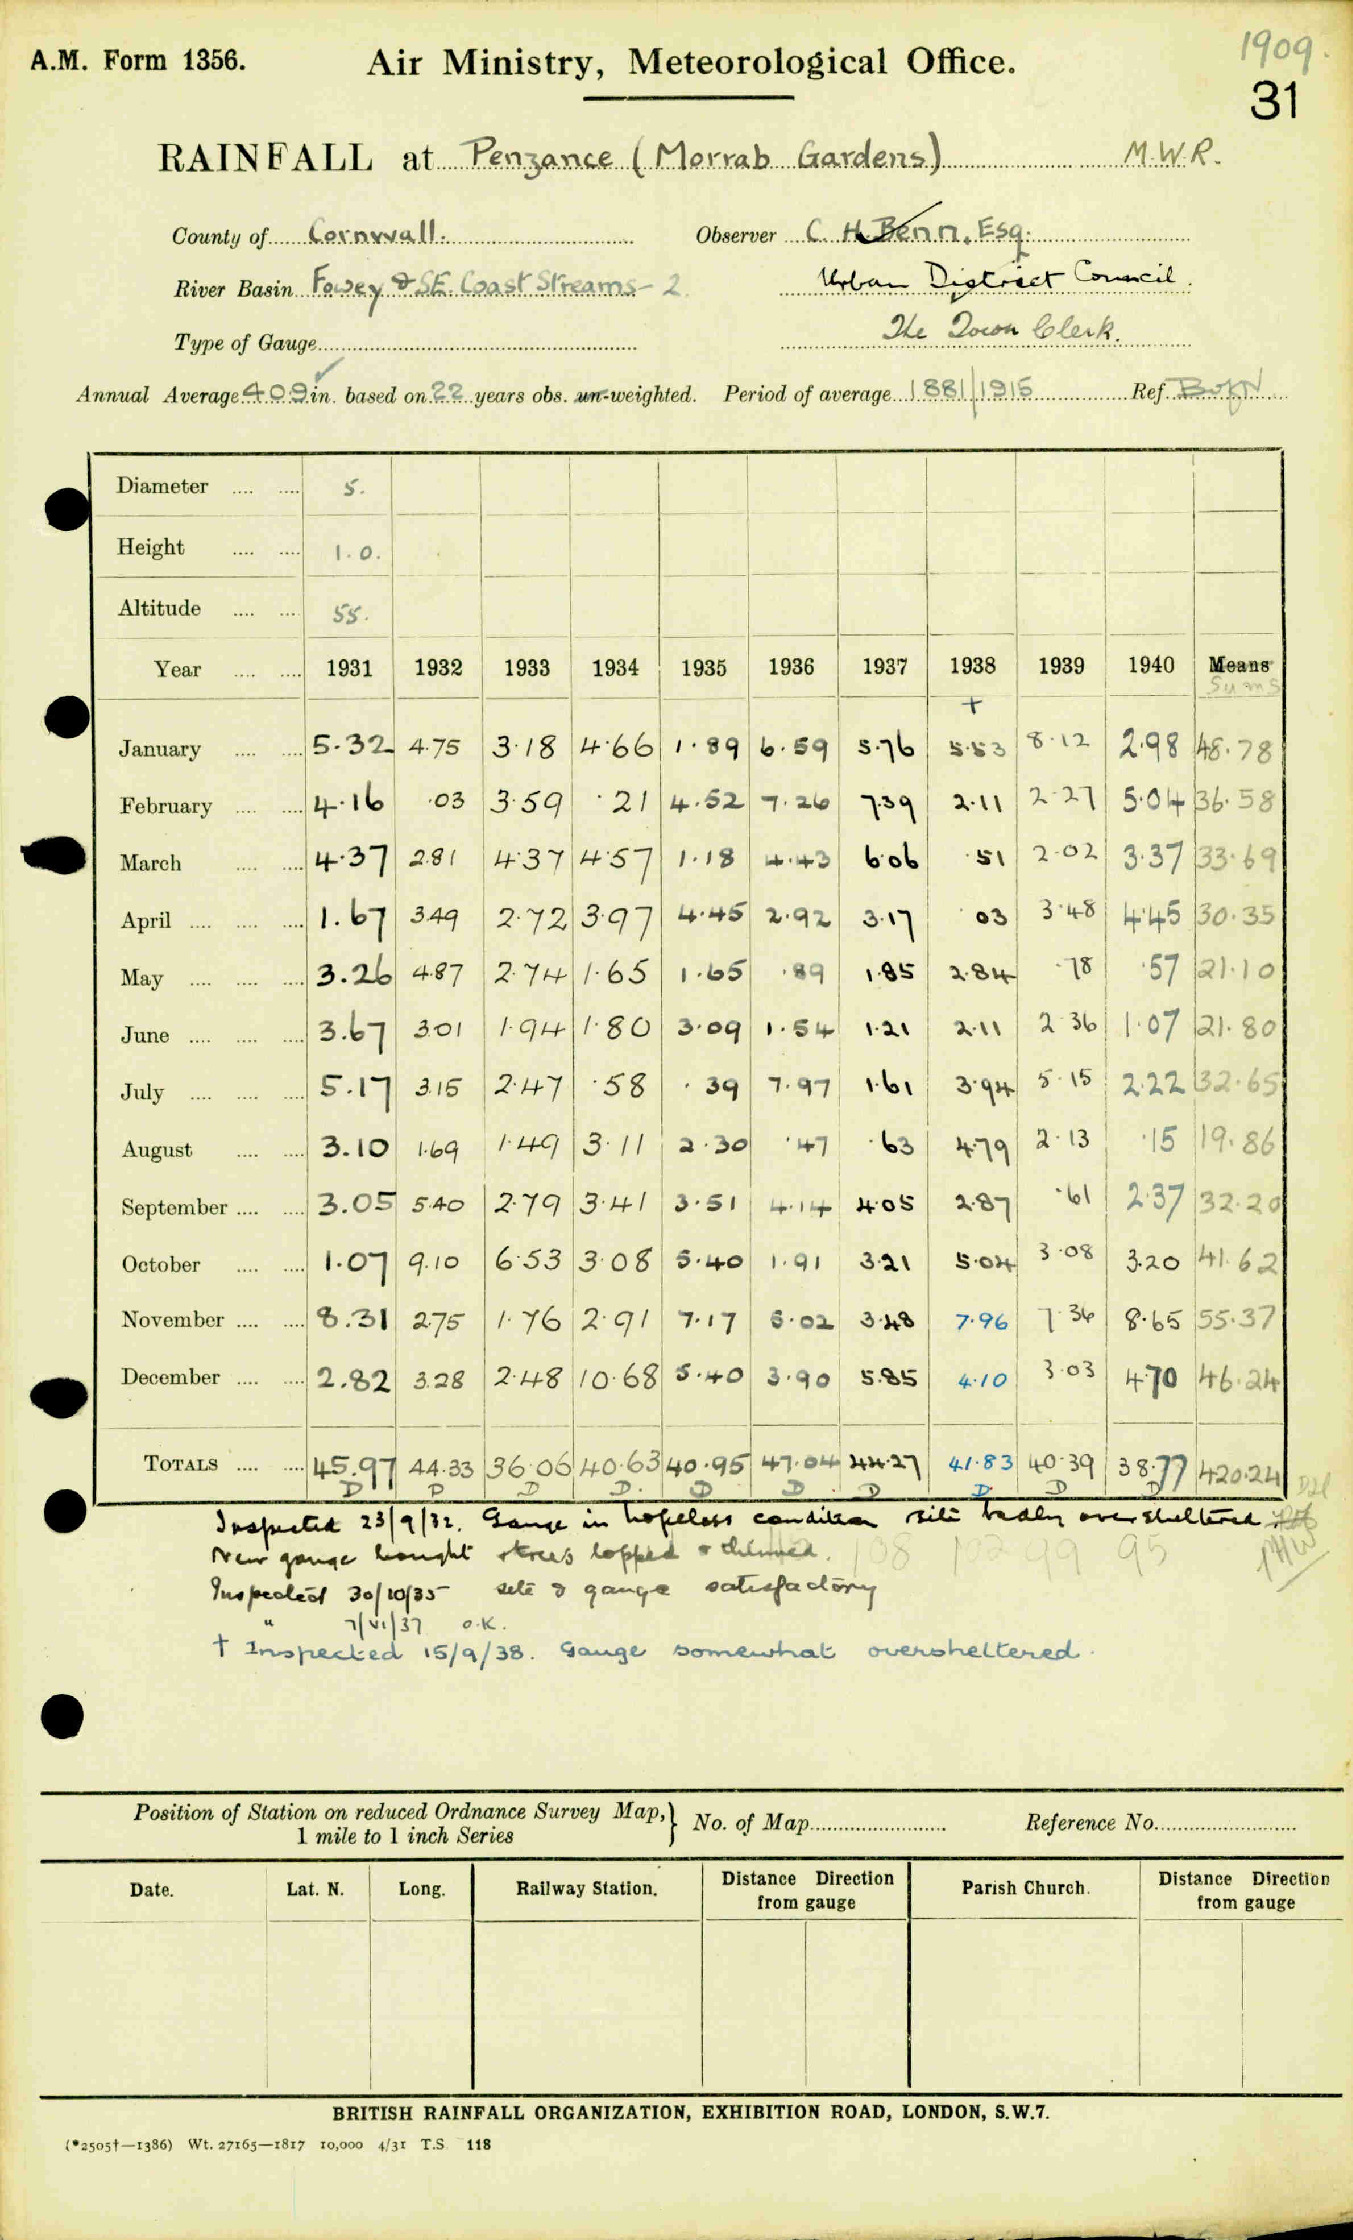 1909.
A.M. Form 1356. Air Ministry, Meteorological Office.
31
RAINFALL at Penzance (Morrab Gardens) M.W.R.
County of Cornwall. Observer C. H. Benn, Esq.
River Basin Fowey & SE. Coast Streams - 2. Urban District Council.
Type of Gauge The Town Clerk.
Annual Average 40.9 in. based on 22 years obs. un-weighted. Period of average 1881/1915 Ref.
Diameter 5.
Height 1.0.
Altitude 55.
Year 1931 1932 1933 1934 1935 1936 1937 1938 1939 1940 Means
+ Sums
January 5.32 4.75 3.18 4.66 1.89 6.59 5.76 5.53 8.12 2.98 48.78
February 4.16 .03 3.59 .21 4.52 7.26 7.39 2.11 2.27 5.04 36.58
March 4.37 2.81 4.37 4.57 1.18 4.43 6.06 .51 2.02 3.37 33.69
April 1.67 3.49 2.72 3.97 4.45 2.92 3.17 .03 3.48 4.45 30.35
May 3.26 4.87 2.74 1.65 1.65 .89 1.85 2.84 .78 .57 21.10
June 3.67 3.01 1.94 1.80 3.09 1.54 1.21 2.11 2.36 1.07 21.80
July 5.17 3.15 2.47 .58 .39 7.97 1.61 3.94 5.15 2.22 32.65
August 3.10 1.69 1.49 3.11 2.30 .47 .63 4.79 2.13 .15 19.86
September 3.05 5.40 2.79 3.41 3.51 4.14 4.05 2.87 .61 2.37 32.20
October 1.07 9.10 6.53 3.08 5.40 1.91 3.21 5.04 3.08 3.20 41.62
November 8.31 2.75 1.76 2.91 7.17 5.02 3.48 7.96 7.36 8.65 55.37
December 2.82 3.28 2.48 10.68 5.40 3.90 5.85 4.10 3.03 4.70 46.24
TOTALS 45.97 44.33 36.06 40.63 40.95 47.04 44.27 41.83 40.39 38.77 420.24
D D D D. D D D D D D
Inspected 23/9/32. Gauge in hopeless condition site badly oversheltered
New gauge bought trees lopped & thinned. 108 102 99 95
Inspected 30/10/35 site & gauge satisfactory
" 7/VI/37 O.K.
† Inspected 15/9/38. Gauge somewhat oversheltered.
Position of Station on reduced Ordnance Survey Map, No. of Map Reference No.
1 mile to 1 inch Series
Date. Lat. N. Long. Railway Station. Distance Direction from gauge Parish Church. Distance Direction from gauge
BRITISH RAINFALL ORGANIZATION, EXHIBITION ROAD, LONDON, S.W.7.
(*2505†—1386) Wt. 27165—1817 10,000 4/31 T.S. 118